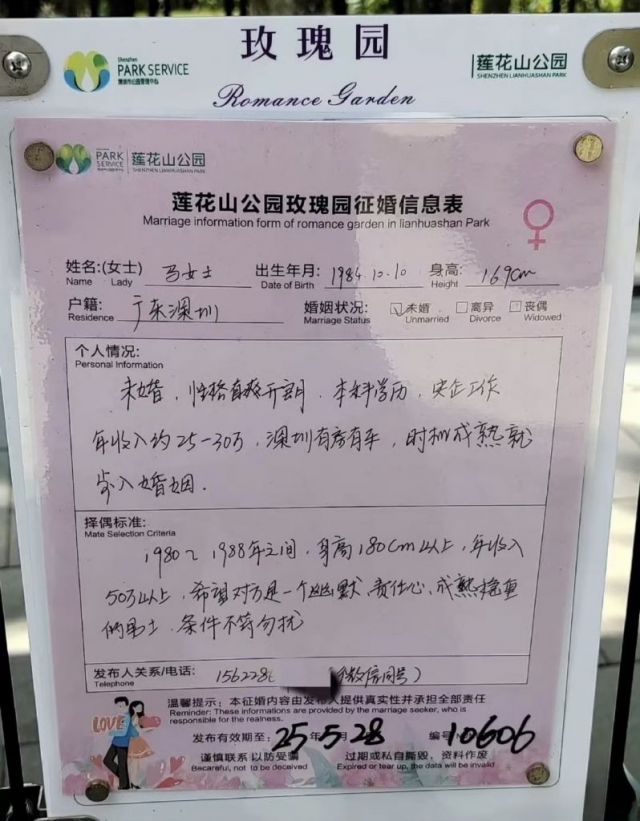 Shenzhen
PARK SERVICE
玫瑰园
Romance Garden
莲花山公园
SHENZHEN LIANHUASHAN PARK
PARK SERVICE
莲花山公园
SHENZHEN LIANHUASHAN PARK
莲花山公园玫瑰园征婚信息表
Marriage information form of romance garden in lianhuashan Park
姓名:(女士) 马女士 出生年月: 1984.10.10 身高: 169cm
Name Lady Date of Birth Height
户籍: 广东深圳 婚姻状况: ☑未婚 □离异 □丧偶
Residence Marriage Status Unmarried Divorce Widowed
个人情况:
Personal Information
未婚，性格直爽开朗，本科学历，央企工作
年收入约25-30万，深圳有房有车，时机成熟就
步入婚姻.
择偶标准:
Mate Selection Criteria
1980~1988年之间，身高180cm以上，年收入
50万以上，希望对方是一个幽默、责任心、成熟稳重
的男士.条件不符勿扰
发布人关系/电话: 156228 (微信同号)
Telephone
温馨提示：本征婚内容由发布人提供真实性并承担全部责任
Reminder: These informations are provided by the marriage seeker, who is
responsible for the realness.
LOVE
发布有效期至: 25年5月28 编号 10606
谨慎联系 以防受骗 过期或私自撕毁，资料作废
Becareful, not to be deceived Expired or tear up, the data will be invalid